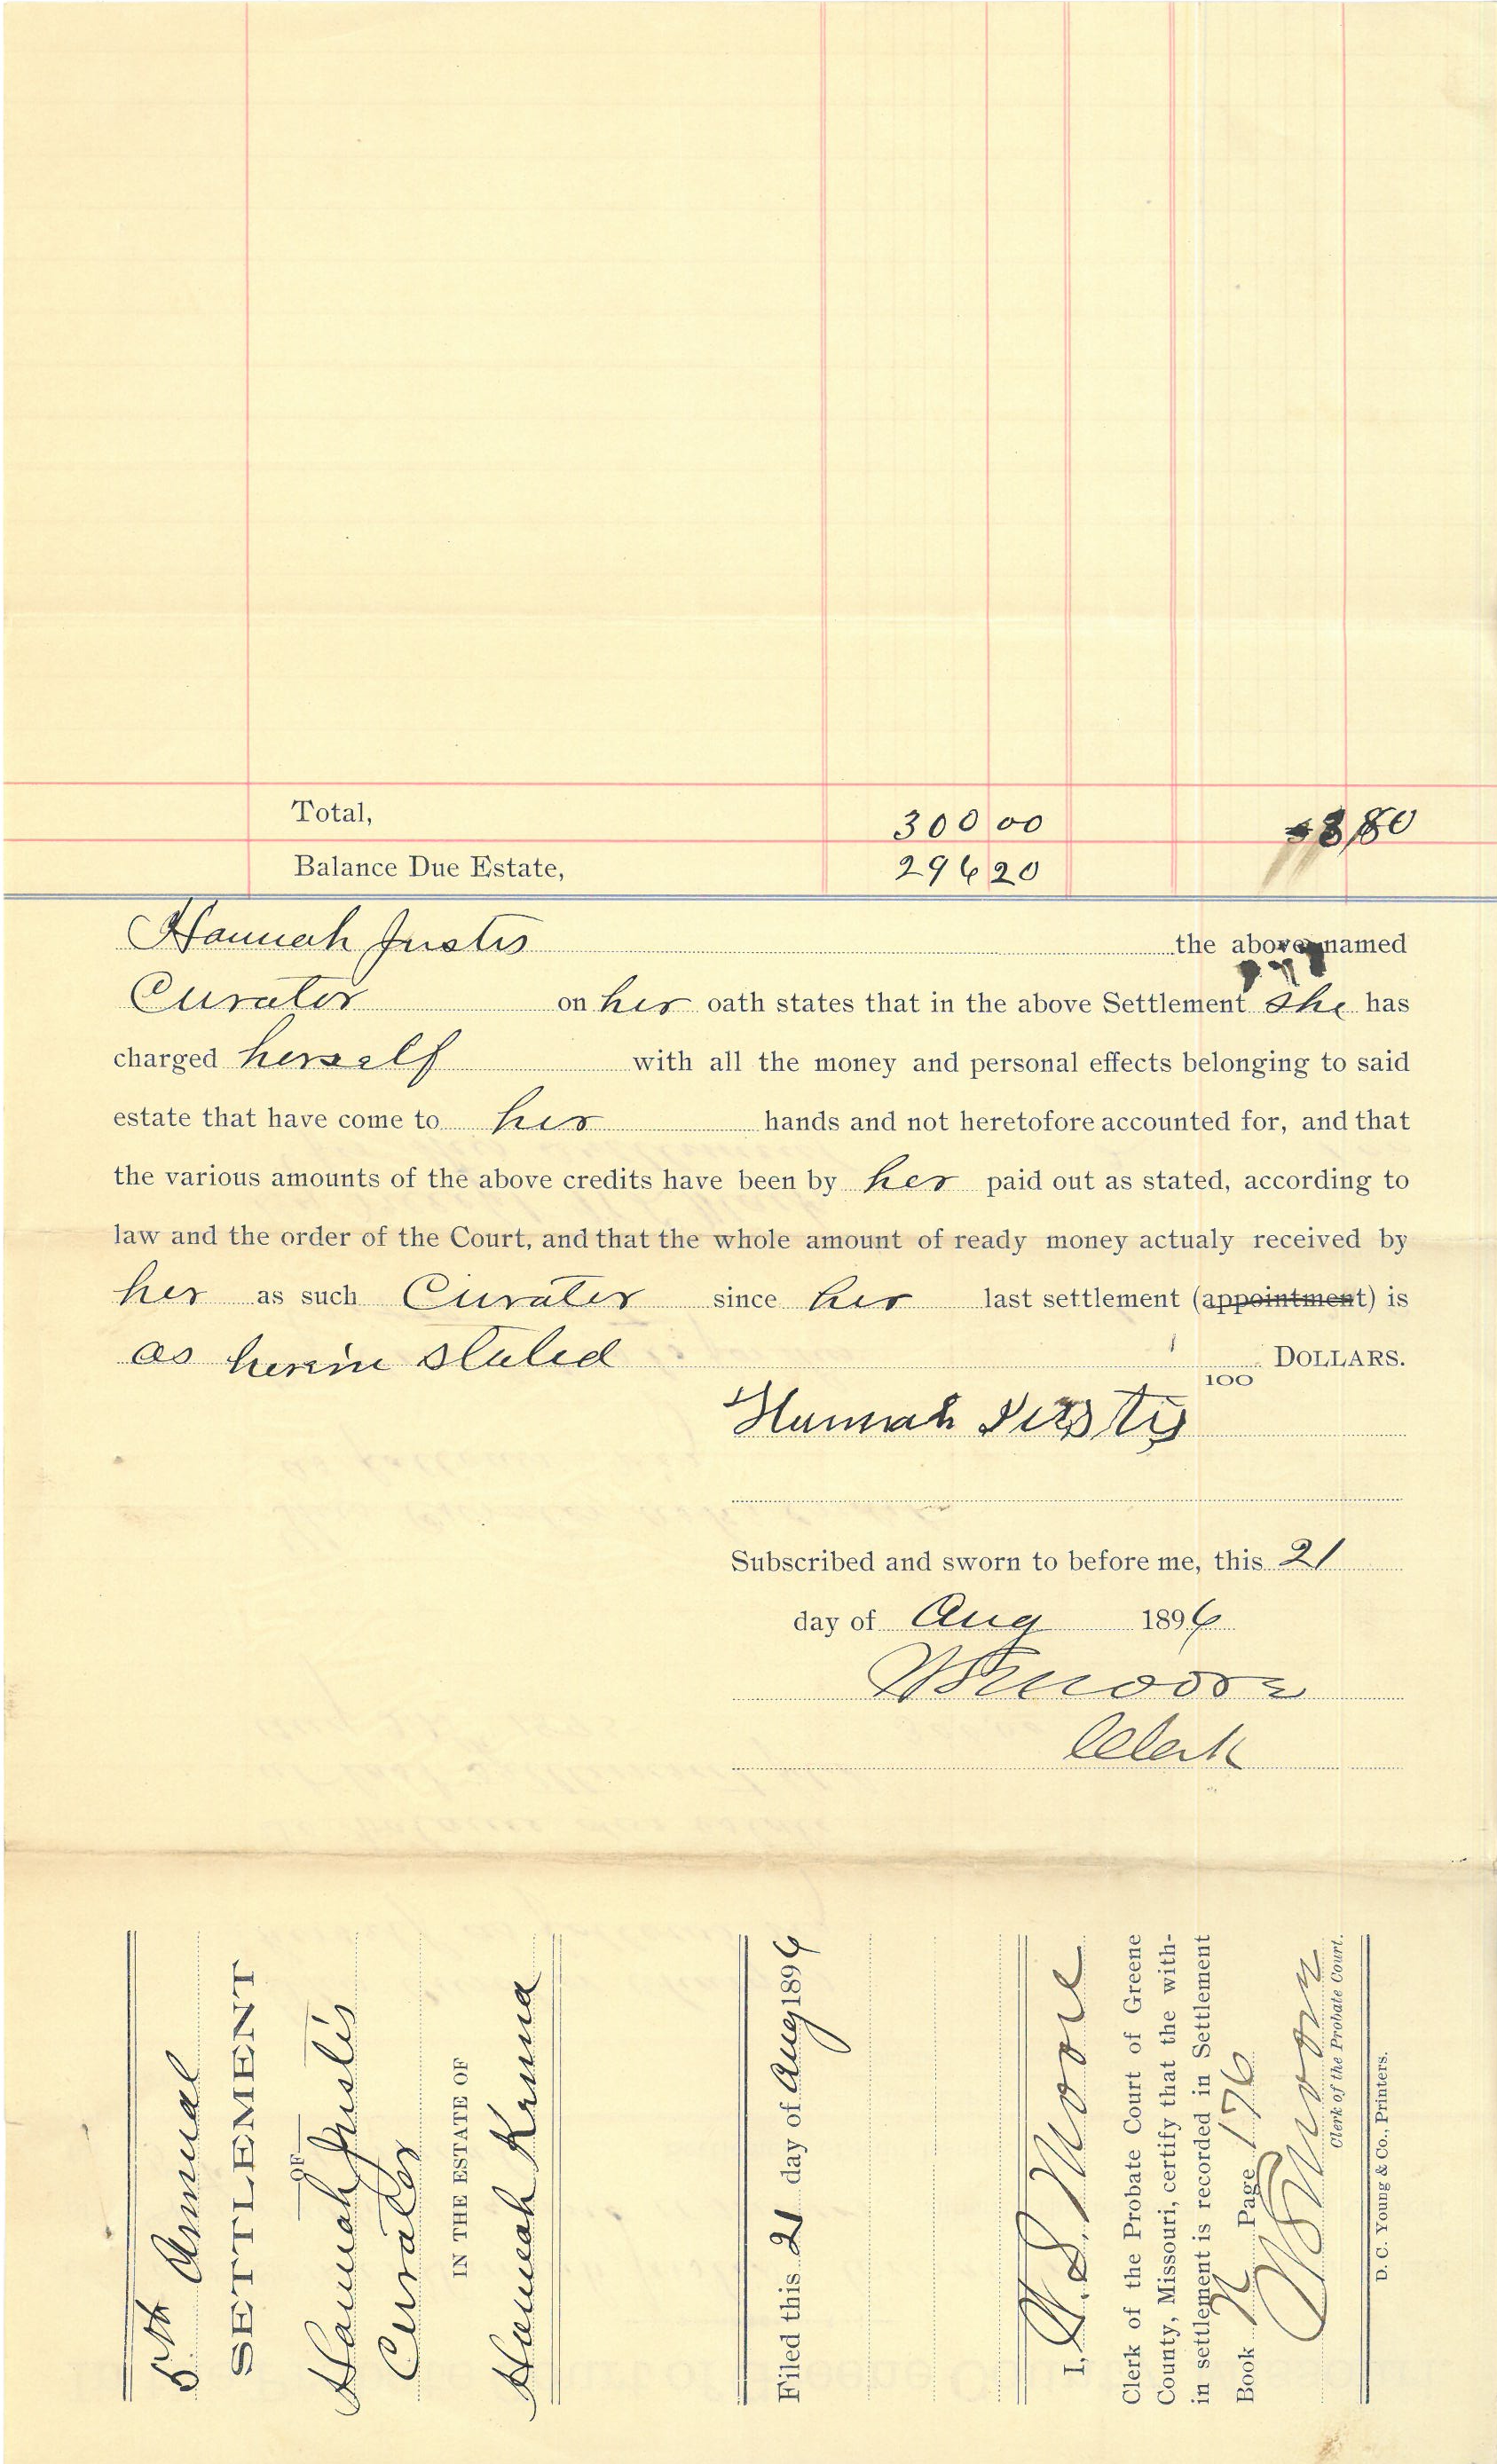 Total, 300 00 3 80
Balance Due Estate, 296 20
Hannah Justis the above named
Curator on her oath states that in the above Settlement she has
charged herself with all the money and personal effects belonging to said
estate that have come to her hands and not heretofore accounted for, and that
the various amounts of the above credits have been by her paid out as stated, according to
law and the order of the Court, and that the whole amount of ready money actualy received by
her as such Curator since her last settlement (appointment) is
as herein stated 100 DOLLARS.
Hannah Justis
Subscribed and sworn to before me, this 21
day of Aug 1896
WSMoore
Clerk
5th Annual
SETTLEMENT
OF
Hannah Justis
Curator
IN THE ESTATE OF
Hannah
Filed this 21 day of Aug 1896
I, W. S. Moore
Clerk of the Probate Court of Greene
County, Missouri, certify that the with-
in settlement is recorded in Settlement
Book N Page 176
WSMoore
Clerk of the Probate Court.
D. C. Young & Co., Printers.